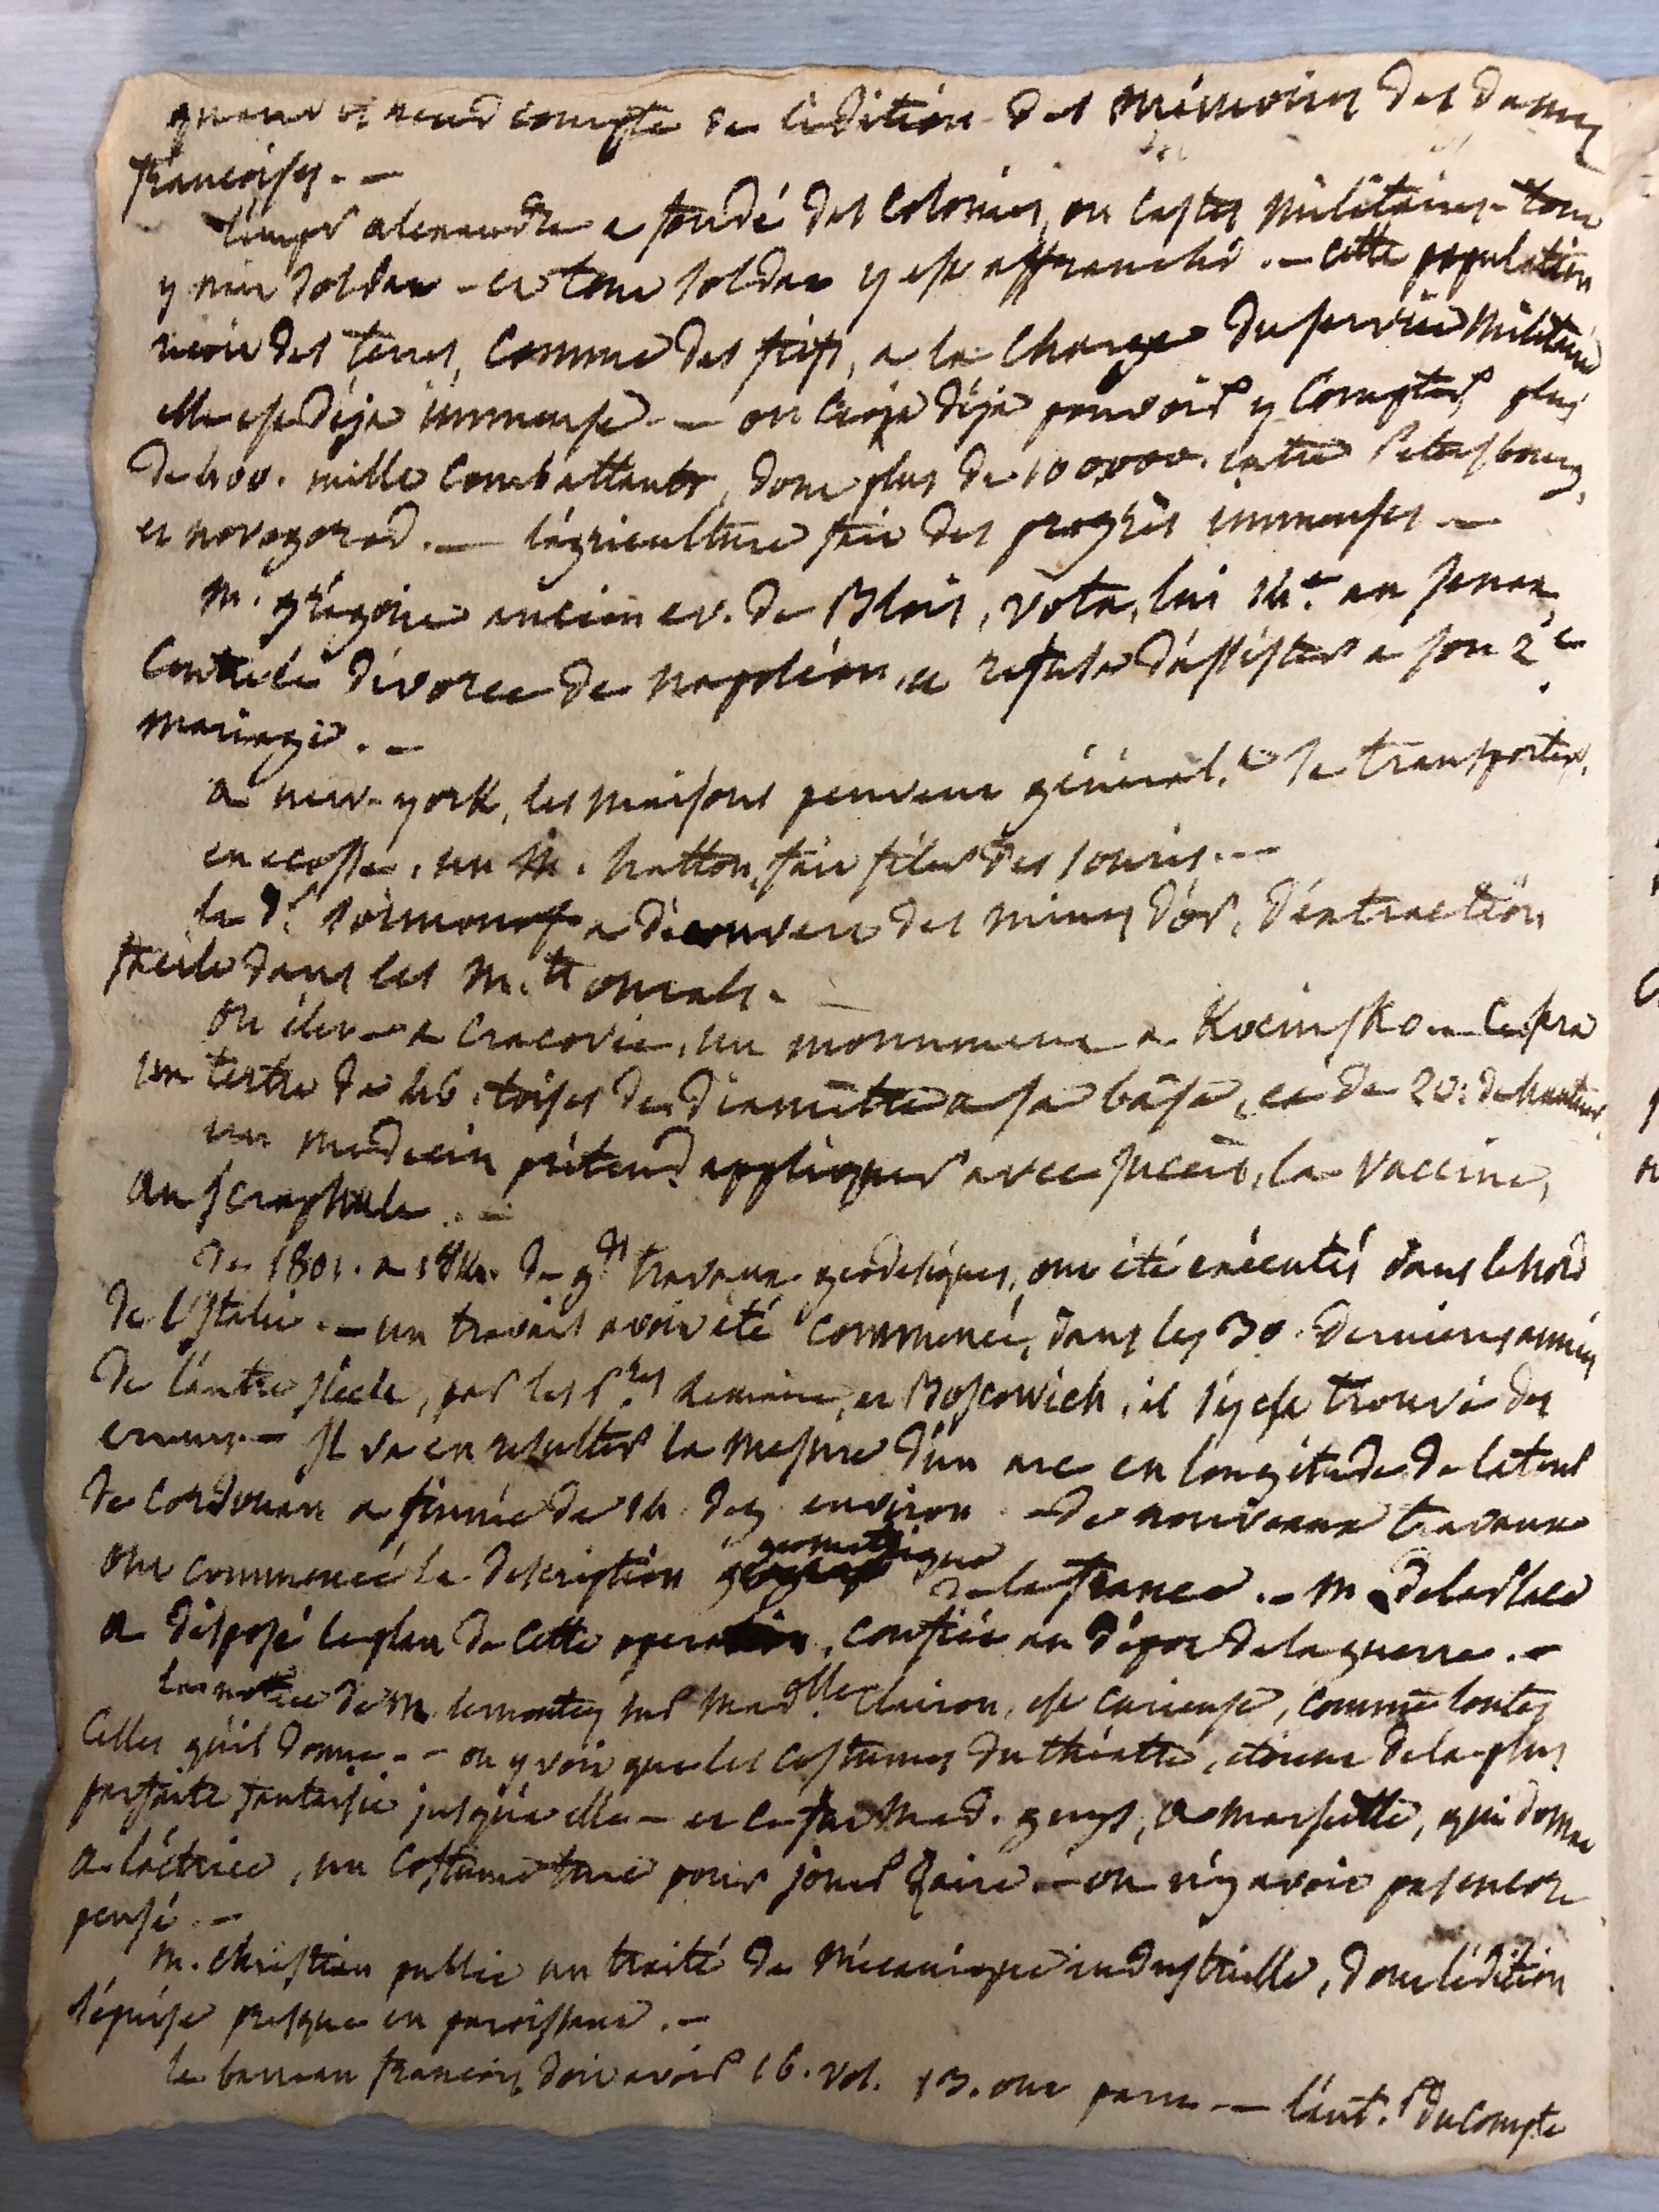 rend compte de l'édition des mémoires des dames
françoises. —
l'emp.r alexandre a fondé des colonies, ou castes militaires – tout
y nait soldat – et tout soldat y est affranchi. — cette population
reçoit des terres, comme des fiefs, a la charge du service militaire
elle est déja immense. — on croit déja pouvoir y compter plus
de 400. mille combattants, dont plus de 100000. entre Petersbourg,
et novogorod. — l'agriculture fait des progrès immenses —
M. grégoire ancien ev. de Blois, vota, lui 14.e au senat,
contre le divorce de napoléon, et refusa d'assister a son 2.e
mariage. —
a new-york, les maisons peuvent général.t se transporter.
en ecosse, un M. hatton, fait filer des souris. —
le d.r a découvert des mines d'or, d'extraction
facile dans les m.ts ourals. —
on élève a cracovie, un monument a Kocinsko — ce sera
un tertre de 46. toises de diamètre a sa bâse, et de 20. de hauteur.
un medecin prétend appliquer avec succès, la vaccine,
au scrophule. —
de 1801. a de g.ds travaux geodésiques, ont été exécutés dans le nord
de l'Italie. — un travail avoit été commencé, dans les 30. dernieres années
de l'autre siècle, par les P.res lemaire, et Boscowich, il s'y est trouvé des
erreurs — Il va en resulter la mesure d'un arc en longitude de la tour
de cordouan a fiume de 14. deg. environ. — de nouveaux travaux
ont commencé la description geometrique de la france. — M de la Place
a disposé le plan de cette operation, confiée au dépot de la guerre. —
la notice de M. lemontey sur Mad.elle Clairon, est curieuse, comme toutes
celles qu'il donne. — on y voit que les costumes du théatre, étoient de la plus
parfaite fantaisie jusqu'a elle — et ce fut Mad. guys, a marseille, qui donna
a l'actrice, un costume turc pour jouer Zaire. — on n'y avoit pas encore
pensé. —
M. christian publie un traité de mécanique industrielle, dont l'édition
s'épuise presque en paroissant. —
le barreau françois doit avoir 16. vol. 13. ont paru — l'aut.r du compte